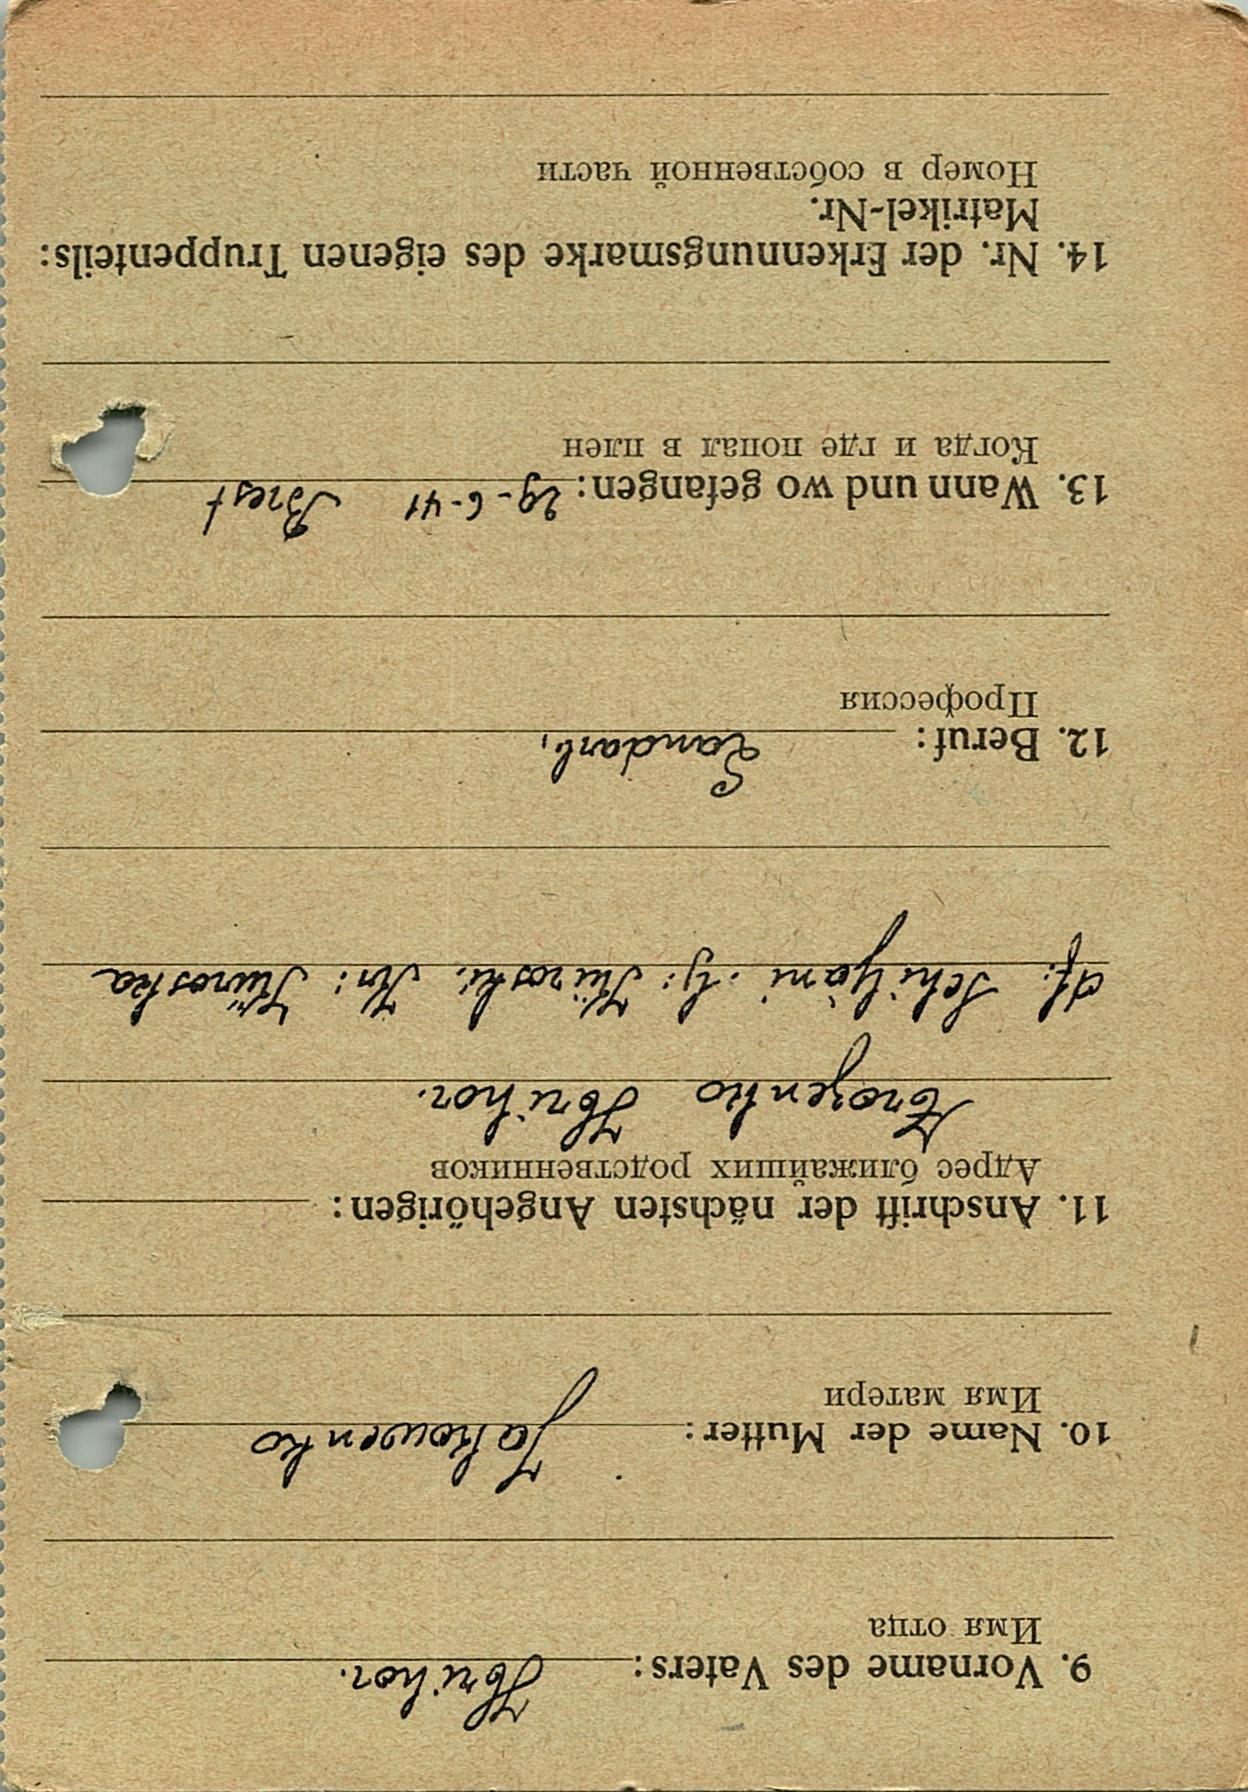 9. Vorname des Vaters: Hrihor.
Имя отца
10. Name der Mutter: Jakowenko
Имя матери
11. Anschrift der nächsten Angehörigen:
Адрес ближайших родственников
Hrihor.
12. Beruf: Landarb.
Профессия
13. Wann und wo gefangen: 29-6-41 Brest
Когда и где попал в плен
14. Nr. der Erkennungsmarke des eigenen Truppenteils:
Matrikel-Nr.
Номер в собственной части